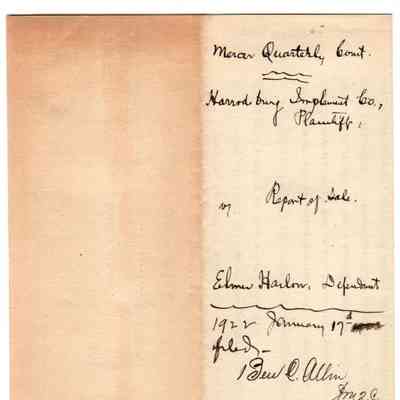 Mercer Quarterly Court.
Harrodsburg Implement Co.,
Plaintiff,
vs Report of Sale.
Elmer Harlow, Defendant
1922 January 17
filed
Ben C. Allin